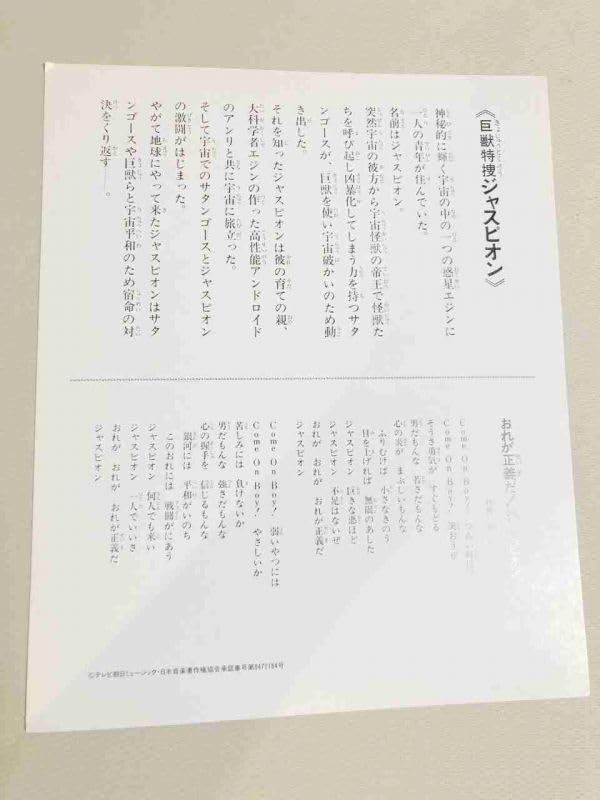 《巨獣特捜ジャスピオン》
神秘的に輝く宇宙の中の一つの惑星エジンに
一人の青年が住んでいた。
名前はジャスピオン。
突然宇宙の彼方から宇宙怪獣の帝王で怪獣た
ちを呼び起し凶暴化してしまう力を持つサタ
ンゴースが、巨獣を使い宇宙破かいのため動
き出した。
それを知ったジャスピオンは彼の育ての親、
大科学者エジンの作った高性能アンドロイド
のアンリと共に宇宙に旅立った。
そして宇宙でのサタンゴースとジャスピオン
の激闘がはじまった。
やがて地球にやって来たジャスピオンはサタ
ンゴースや巨獣らと宇宙平和のため宿命の対
決をくり返す——。
おれが正義だ!
Come On Boy!
Come On Boy! 笑おうぜ
そうさ勇気が すぐもどる
男だもんな 若さだもんな
心の炎が まぶしいもんな
ふりむけば 小さなきのう
目を上げれば 無限のあした
ジャスピオン 巨きな悪ほど
ジャスピオン 不足はないぜ
おれが おれが おれが正義だ
ジャスピオン
Come On Boy! 弱いやつには
Come On Boy! やさしいか
苦しみには 負けないか
男だもんな 強さだもんな
心の握手を 信じるもんな
銀河には 平和がいのち
このおれには 戦闘がにあう
ジャスピオン 何人でも来い
ジャスピオン 一人でいいさ
おれが おれが おれが正義だ
ジャスピオン
©テレビ朝日ミュージック・日本音楽著作権協会承諾番号第8472184号